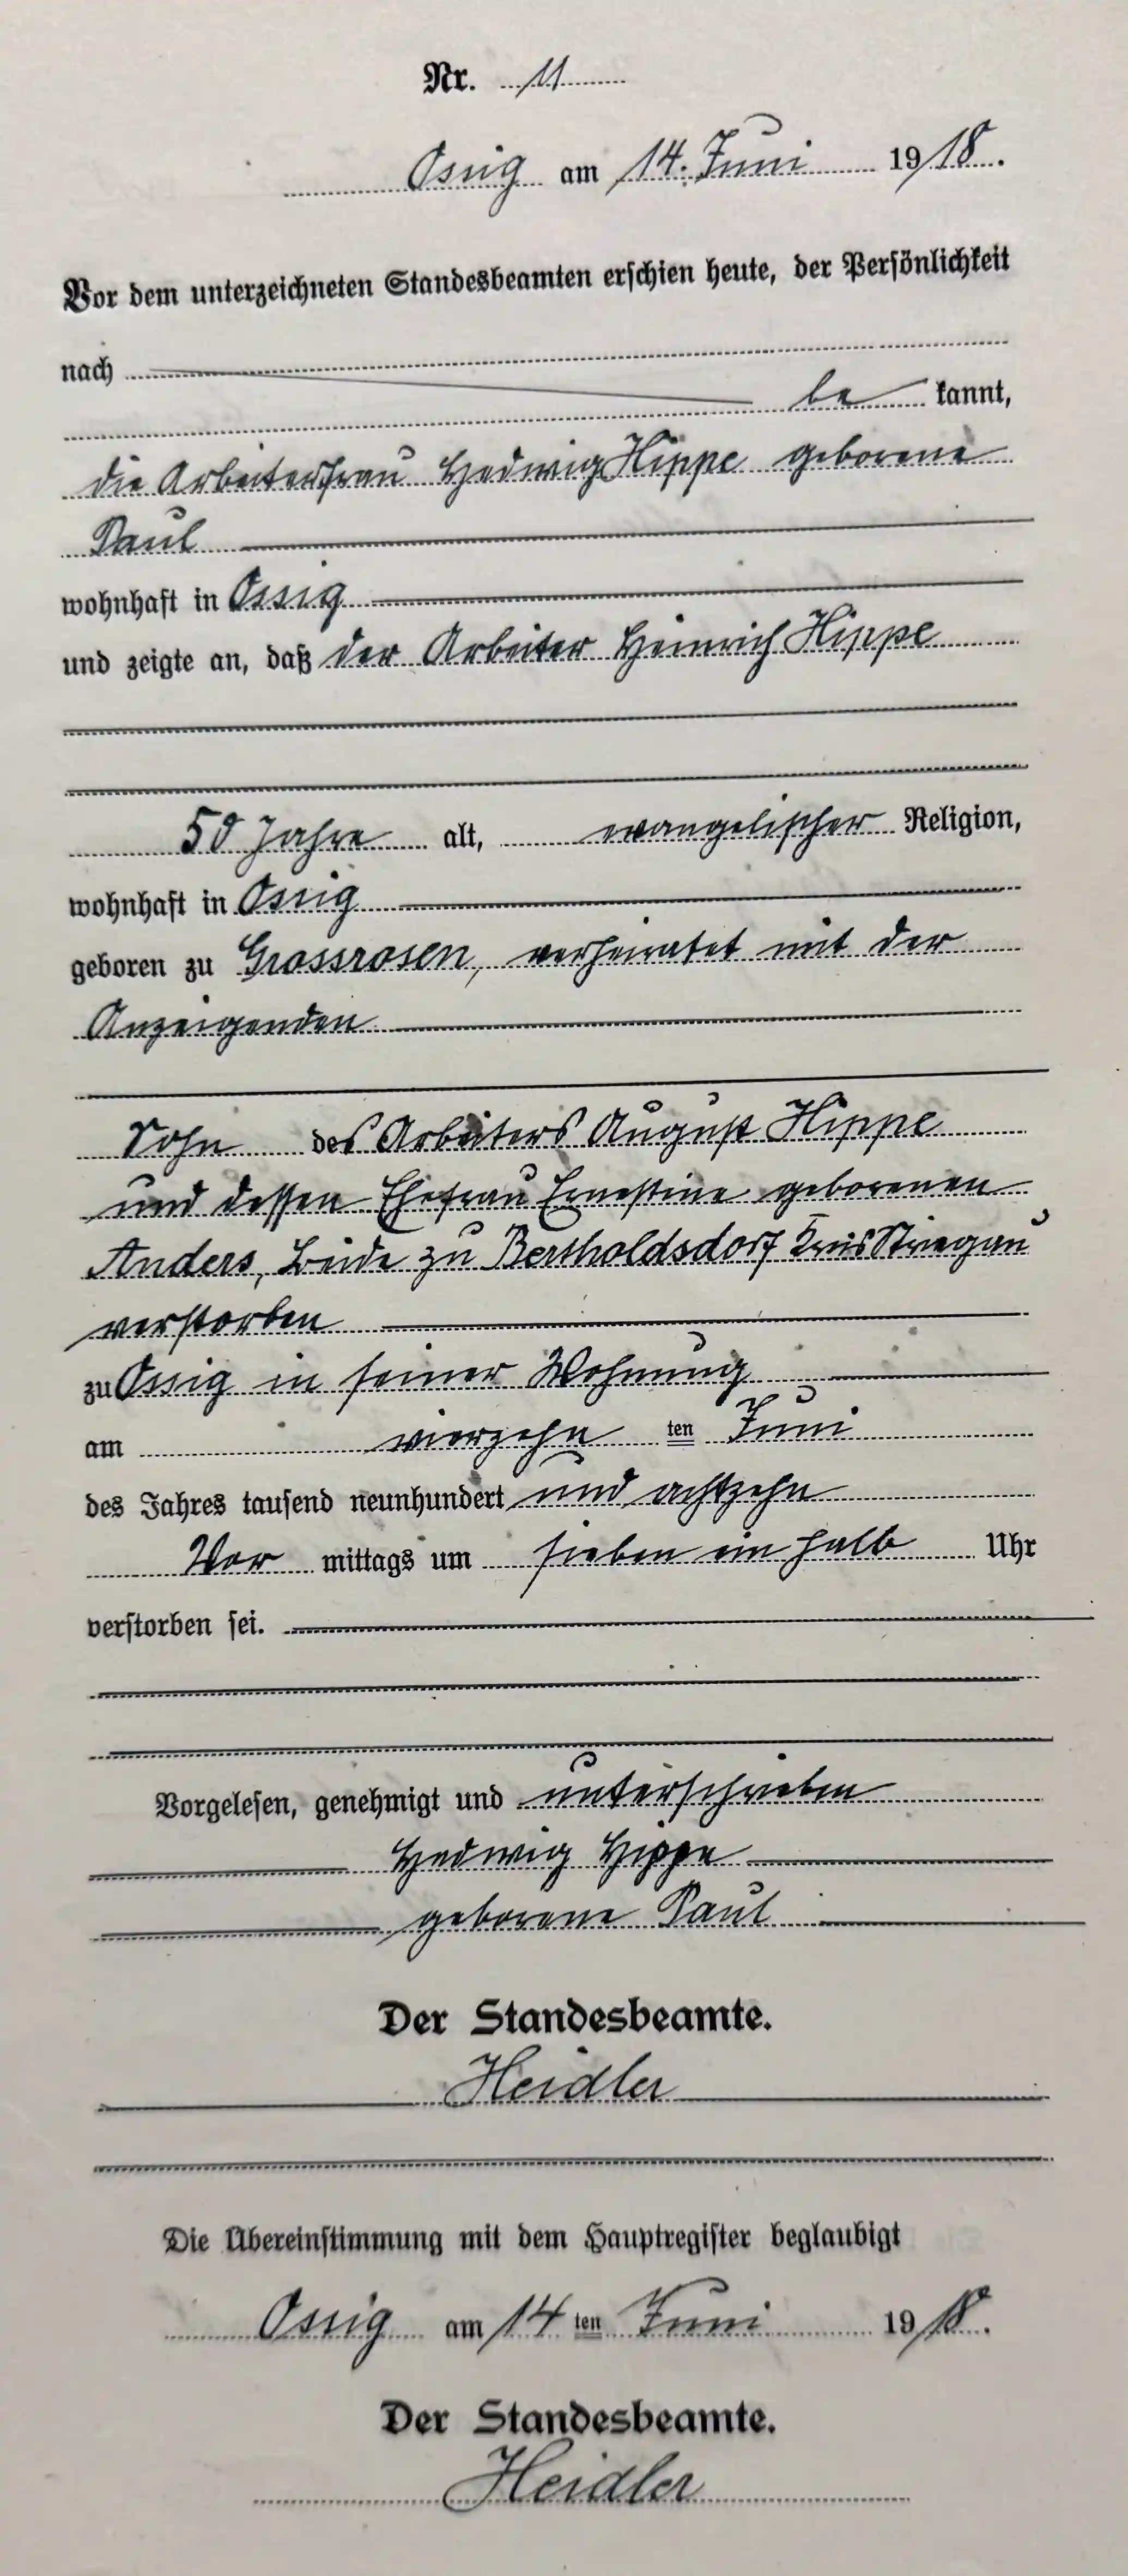 Nr. 11
Ossig am 14. Juni 1918.
Vor dem unterzeichneten Standesbeamten erschien heute, der Persönlichkeit
nach
be kannt,
die Arbeiterfrau Hedwig Hippe geborene
Paul
wohnhaft in Ossig
und zeigte an, daß der Arbeiter Heinrich Hippe
50 Jahre alt, evangelischer Religion,
wohnhaft in Ossig
geboren zu Grossrosen, verheiratet mit der
Anzeigenden
Sohn des Arbeiters August Hippe
und dessen Ehefrau Ernestine geborenen
Anders, beide zu Bertholdsdorf Kreis Striegau
verstorben
zu Ossig in seiner Wohnung
am vierzehn ten Juni
des Jahres tausend neunhundert und achtzehn
Vor mittags um sieben ein halb Uhr
verstorben sei.
Vorgelesen, genehmigt und unterschrieben
Hedwig Hippe
geborene Paul
Der Standesbeamte.
Heidler
Die Übereinstimmung mit dem Hauptregister beglaubigt
Ossig am 14 ten Juni 1918.
Der Standesbeamte.
Heidler